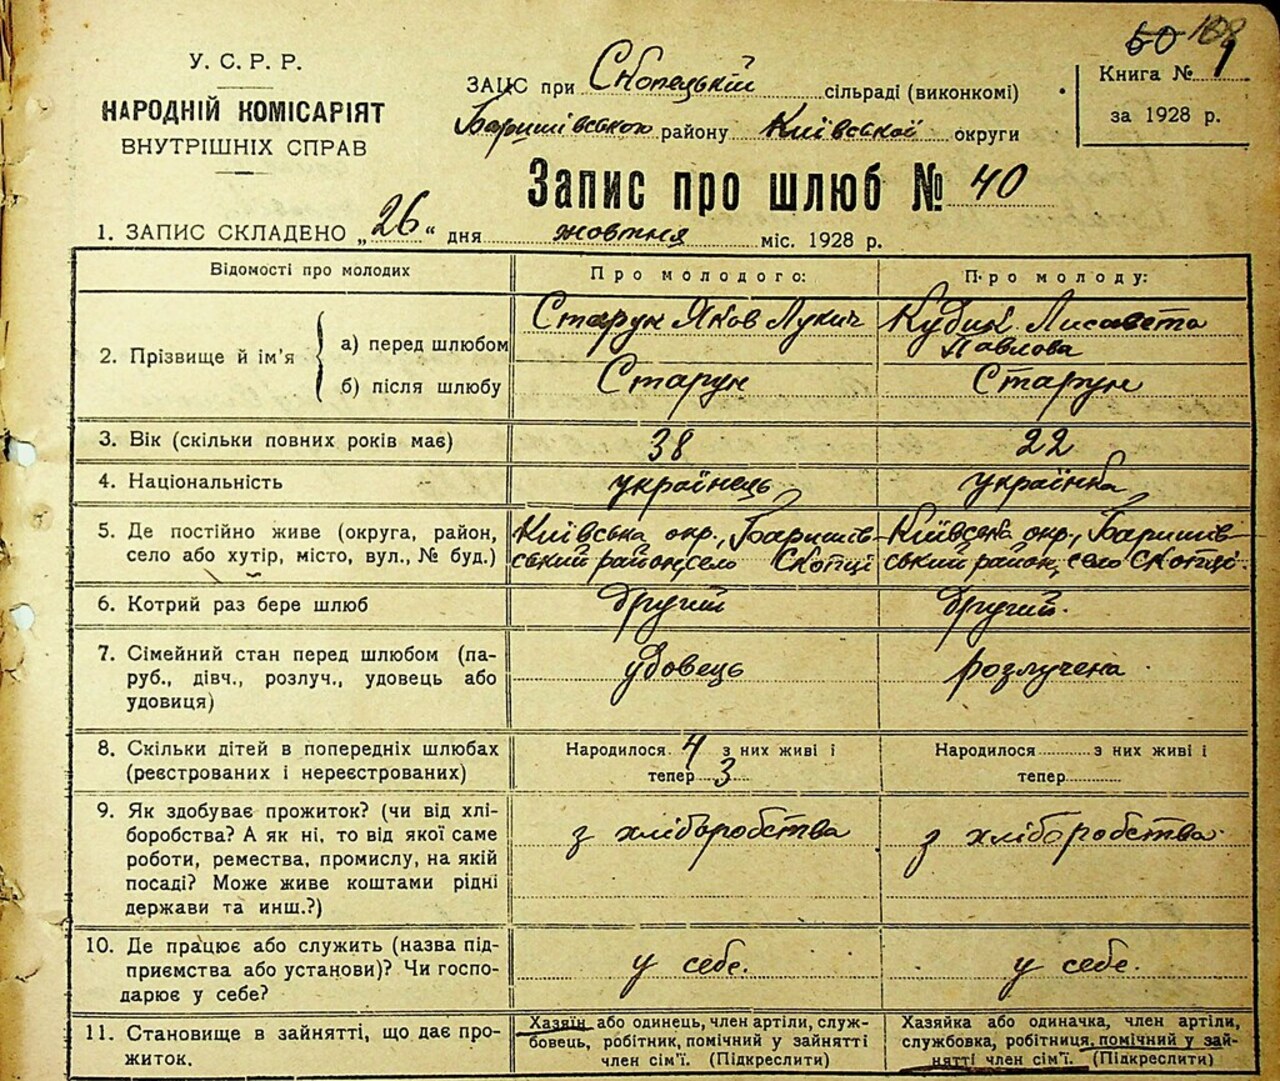 60 108
У. С. Р. Р.
НАРОДНІЙ КОМІСАРІЯТ
ВНУТРІШНІХ СПРАВ
ЗАПС при Скопецькій сільраді (виконкомі)
Баришівською району Київської округи
Книга № 1
за 1928 р.
Запис про шлюб № 40
1. ЗАПИС СКЛАДЕНО „26“ дня жовтня міс. 1928 р.
Відомості про молодих
Про молодого:
Про молоду:
2. Прізвище й ім'я
а) перед шлюбом
Старун Яков Лукич
Кубик Лисавета
Павлова
б) після шлюбу
Старун
Старун
3. Вік (скільки повних років має)
38
22
4. Національність
українець
українка
5. Де постійно живе (округа, район,
село або хутір, місто, вул., № буд.)
Київська окр., Баришів-
ський район, село Скопці
Київська окр., Баришів-
ський район, село Скопці.
6. Котрий раз бере шлюб
другий
другий.
7. Сімейний стан перед шлюбом (па-
руб., дівч., розлуч., удовець або
удовиця)
удовець
розлучена
8. Скільки дітей в попередніх шлюбах
(реєстрованих і нереєстрованих)
Народилося 4 з них живі і
тепер 3
Народилося з них живі і
тепер
9. Як здобуває прожиток? (чи від хлі-
боробства? А як ні, то від якої саме
роботи, ремества, промислу, на якій
посаді? Може живе коштами рідні
держави та инш.?)
з хліборобства
з хліборобства
10. Де працює або служить (назва під-
приємства або установи)? Чи госпо-
дарює у себе?
у себе.
у себе.
11. Становище в зайнятті, що дає про-
житок.
Хазяїн або одинець, член артіли, служ-
бовець, робітник, помічний у зайнятті
член сім'ї. (Підкреслити)
Хазяйка або одиначка, член артіли,
службовка, робітниця, помічний у зай-
нятті член сім'ї. (Підкреслити)